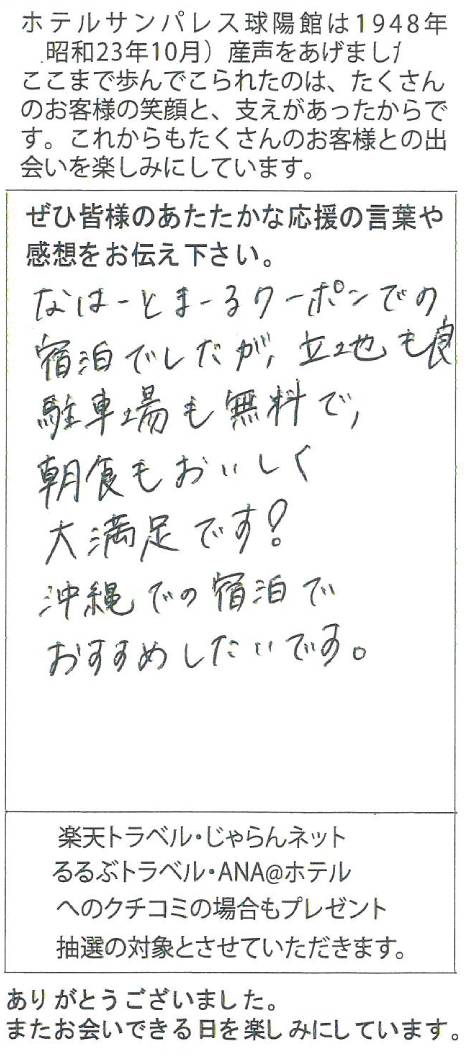 ホテルサンパレス球陽館は1948年
昭和23年10月）産声をあげまし
ここまで歩んでこられたのは、たくさん
のお客様の笑顔と、支えがあったからで
す。これからもたくさんのお客様との出
会いを楽しみにしています。
ぜひ皆様のあたたかな応援の言葉や
感想をお伝え下さい。
なはーとまーるクーポンでの
宿泊でしたが、立地も良
駐車場も無料で、
朝食もおいしく
大満足です!
沖縄での宿泊で
おすすめしたいです。
楽天トラベル・じゃらんネット
るるぶトラベル・ANA@ホテル
へのクチコミの場合もプレゼント
抽選の対象とさせていただきます。
ありがとうございました。
またお会いできる日を楽しみにしています。